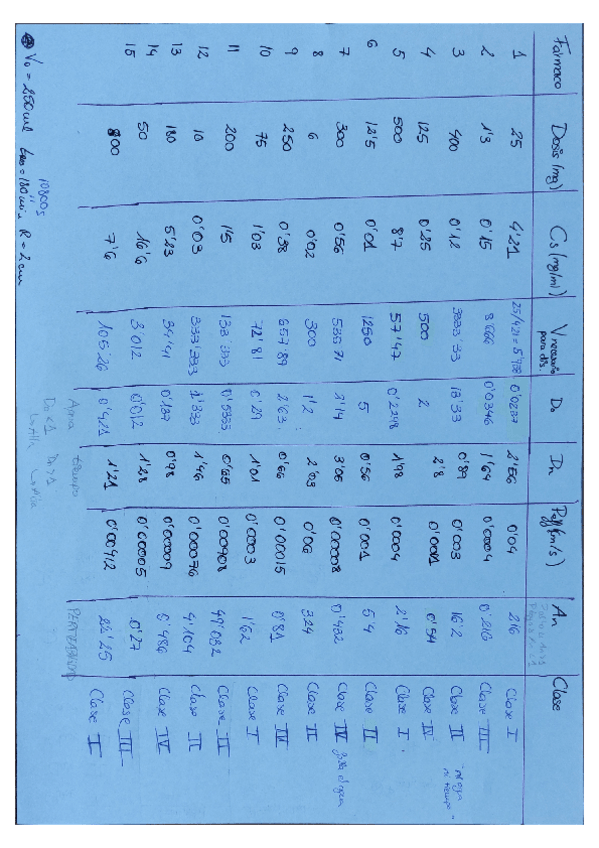 Fármaco Dosis (mg) Cs (mg/ml) V necesario para dis. Do Dn Peff (cm/s) An Clase
1 25 4'21 25/4'21 = 5'938 0'0237 2'56 0'04 216 Clase I
2 1'3 0'15 8'666 0'0346 1'64 0'00004 0'216 Clase III
3 400 0'12 3333'33 13'33 0'89 0'003 16'2 Clase II
4 125 0'25 500 2 2'8 0'0001 0'54 Clase IV
5 500 8'7 57'47 0'2298 1'98 0'0004 2'16 Clase I
6 12'5 0'01 1250 5 0'56 0'001 5'4 Clase II
7 300 0'56 535'71 2'14 3'06 0'00008 0'432 Clase IV
8 6 0'02 300 1'2 2'03 0'06 324 Clase II
9 250 0'38 657'89 2'63 0'66 0'00015 0'81 Clase IV
10 75 1'03 72'81 0'29 1'01 0'0003 1'62 Clase I
11 200 1'5 133'333 0'5333 0'65 0'00908 49'032 Clase II
12 10 0'03 333'333 1'333 1'46 0'00076 4'104 Clase II
13 180 5'23 34'41 0'137 0'98 0'00009 0'486 Clase IV
14 50 16'6 3'012 0'012 1'28 0'00005 0'27 Clase III
15 800 7'6 105'26 0'421 1'21 0'00412 22'25 Clase I
tiempo PERMEABILIDAD
Do < 1 Do > 1
10800s
V₀ = 250 ml t = 180 min R = 2 cm